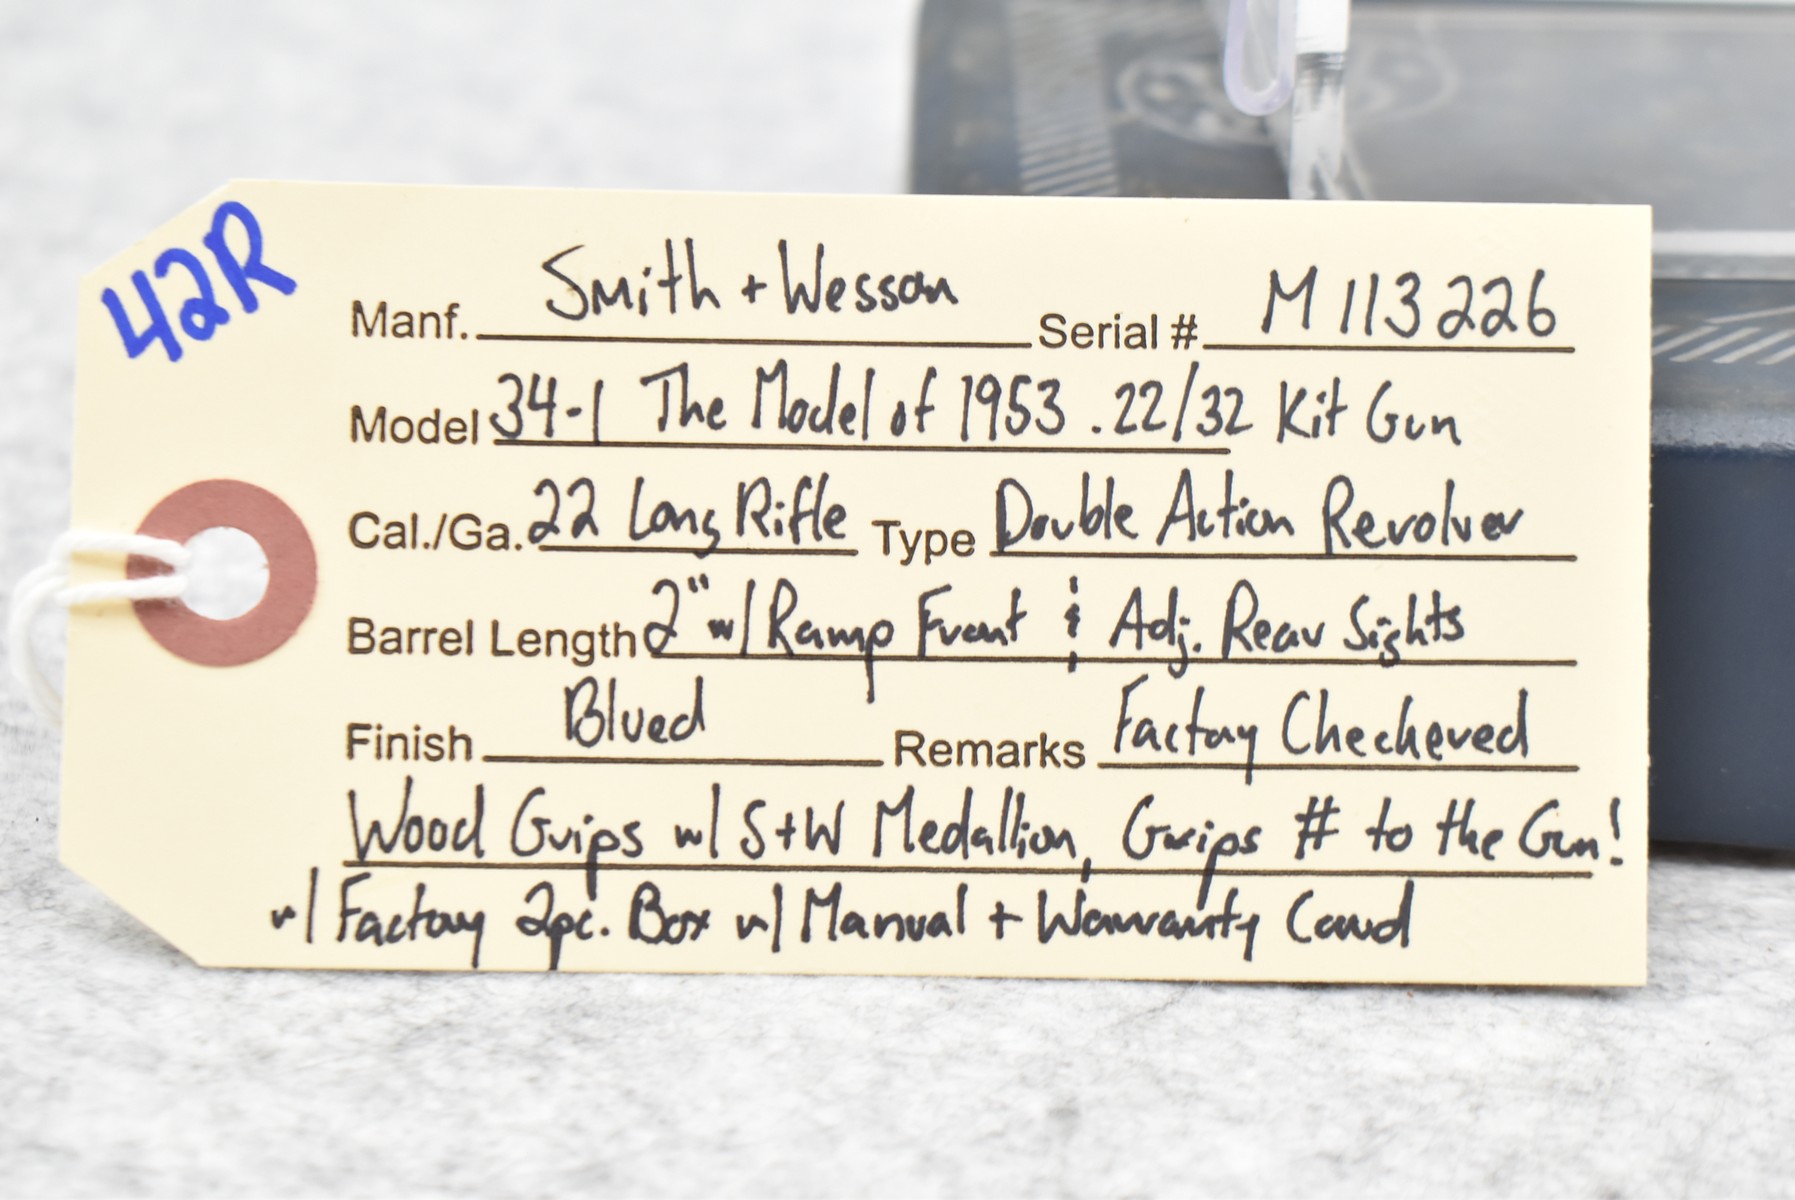 42R
Manf. Smith + Wesson Serial # M113226
Model 34-1 The Model of 1953 .22/32 Kit Gun
Cal./Ga. 22 Long Rifle Type Double Action Revolver
Barrel Length 2" w/ Ramp Front & Adj. Rear Sights
Finish Blued Remarks Factory Checkered
Wood Grips w/ S+W Medallion, Grips # to the Gun!
w/ Factory 2pc. Box w/ Manual + Warranty Card